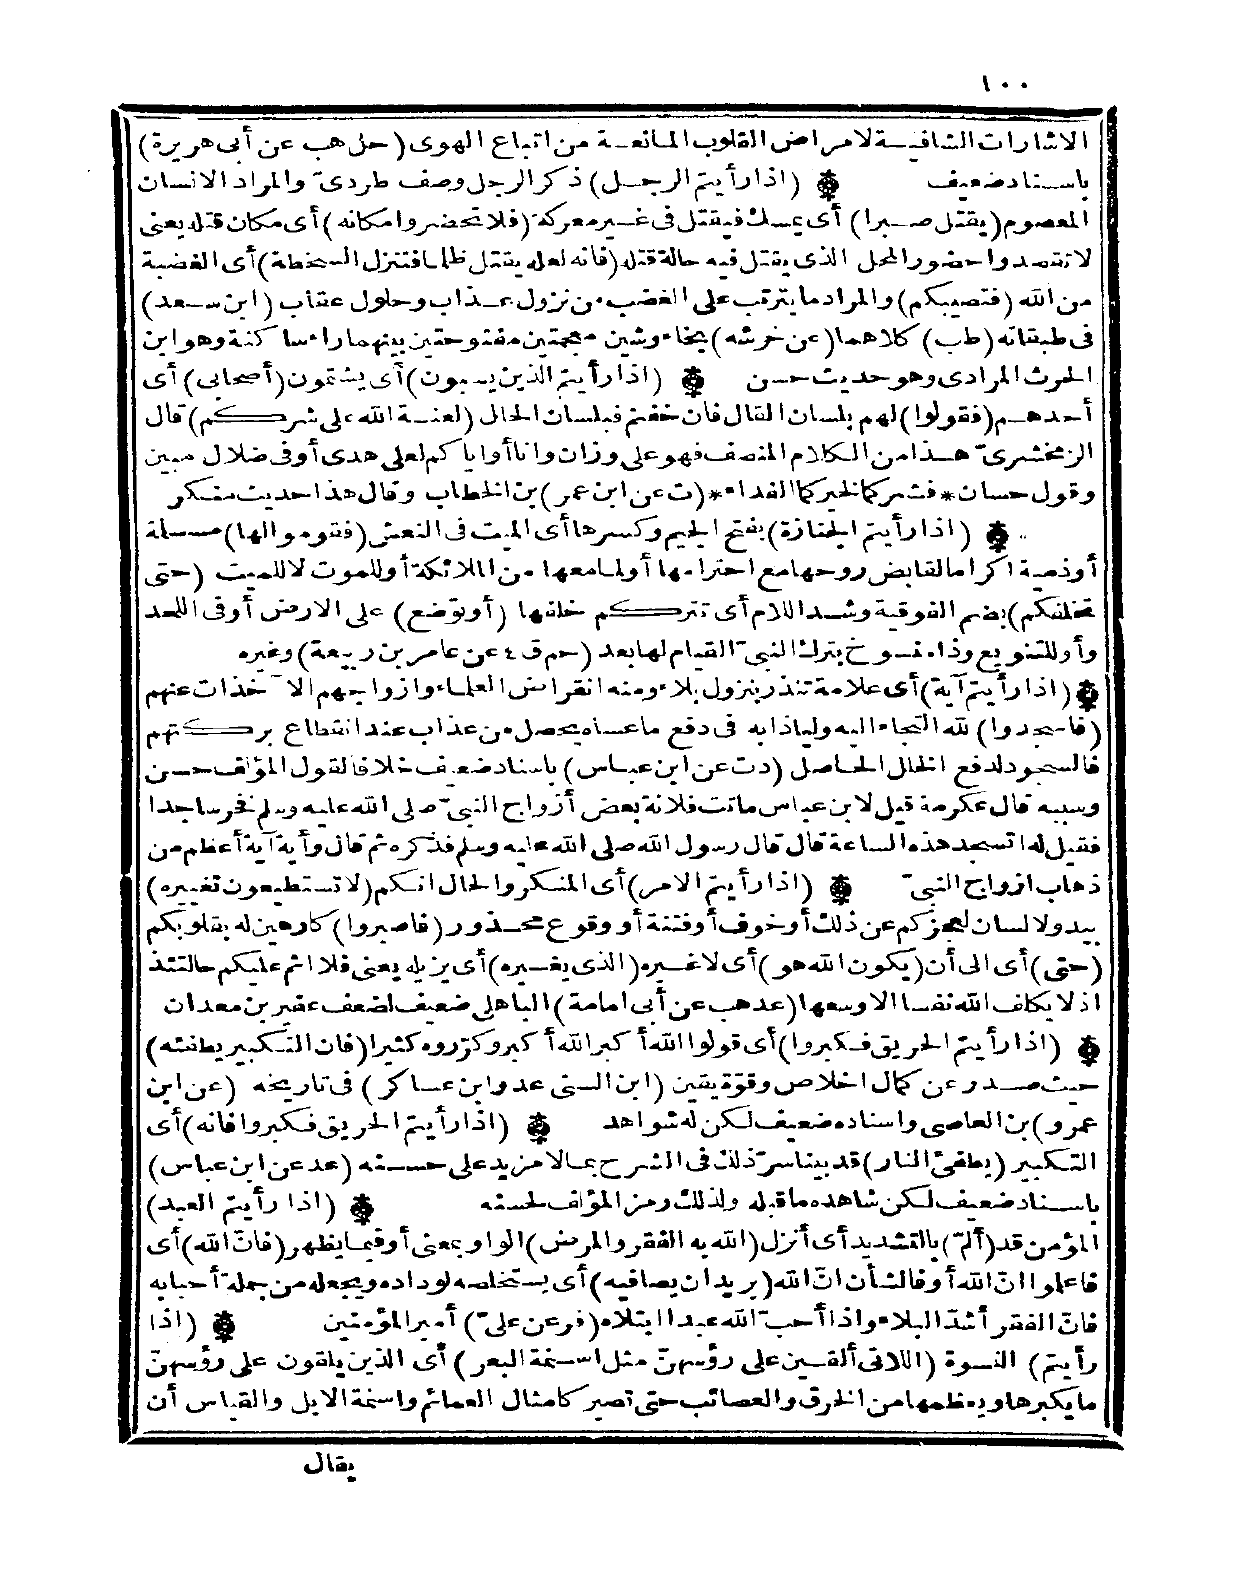 ١٠٠
الاشارات الشافية لامراض القلوب المانعة من اتباع الهوى (حل هب عن أبى هريرة)
باسناد ضعيف ۞ (اذا رأيتم الرجل) ذكر الرجل وصف طردى والمراد الانسان
المعصوم (يقتل صبرا) أى يمسك فيقتل فى غير معركة (فلا تحضروا مكانه) أى مكان قتله يعنى
لا تقصدوا حضور المحل الذى يقتل فيه حالة قتله (فانه لعله يقتل ظلما فتنزل السخطة) أى الغضبة
من الله (فتصيبكم) والمراد ما يترتب على الغضب من نزول عذاب وحلول عقاب (ابن سعد)
فى طبقاته (طب) كلاهما (عن خرشه) بخاء وشين معجمتين مفتوحتين بينهما راء ساكنة وهو ابن
الحرث المرادى وهو حديث حسن ۞ (اذا رأيتم الذين يسبون) أى يشتمون (أصحابى) أى
أحدهم (فقولوا) لهم بلسان القال فان خفتم فبلسان الحال (لعنة الله على شركم) قال
الزمخشرىّ هذا من الكلام المنصف فهو على وزان وانا أو اياكم لعلى هدى أو فى ضلال مبين
وقول حسان * فشركما لخيركما الفداء * (ت عن ابن عمر) بن الخطاب وقال هذا حديث منكر
۞ (اذا رأيتم الجنازة) بفتح الجيم وكسرها أى الميت فى النعش (فقوموا لها) مسلمة
أو ذمية اكراما لقابض روحها مع احترامها أو لما معها من الملائكة أو للموت لا للميت (حتى
تخلفكم) بضم الفوقية وشد اللام أى تترككم خلفها (أو توضع) على الارض أو فى اللحد
وأو للتنويع وذا منسوخ بترك النبىّ القيام لها بعد (حم ق ٤ عن عامر بن ربيعة) وغيره
۞ (اذا رأيتم آية) أى علامة تنذر بنزول بلاء ومنه انقراض العلماء وازواجهم الآخذات عنهم
(فاسجدوا) لله التجاء اليه ولياذا به فى دفع ما عساه يحصل من عذاب عند انقطاع بركتهم
فالسجود لدفع الخلل الحاصل (د ت عن ابن عباس) باسناد ضعيف خلافا لقول المؤلف حسن
وسببه قال عكرمة قيل لابن عباس ماتت فلانة بعض أزواج النبىّ صلى الله عليه وسلم فخر ساجدا
فقيل له اتسجد هذه الساعة قال قال رسول الله صلى الله عليه وسلم فذكره ثم قال وأية آية أعظم من
ذهاب ازواج النبىّ ۞ (اذا رأيتم الامر) أى المنكر والحال انكم (لا تستطيعون تغييره)
بيد ولا لسان لعجزكم عن ذلك أو خوف أو فتنة أو وقوع محذور (فاصبروا) كارهين له بقلوبكم
(حتى) أى الى أن (يكون الله هو) أى لا غيره (الذى يغيره) أى يزيله يعنى فلا اثم عليكم حالتئذ
اذ لا يكلف الله نفسا الا وسعها (عد هب عن أبى امامة) الباهلى ضعيف لضعف عفير بن معدان
۞ (اذا رأيتم الحريق فكبروا) أى قولوا الله أكبر الله أكبر وكرّروه كثيرا (فان التكبير يطفئه)
حيث صدر عن كمال اخلاص وقوّة يقين (ابن السنى عد وابن عساكر) فى تاريخه (عن ابن
عمرو) بن العاصى واسناده ضعيف لكن له شواهد ۞ (اذا رأيتم الحريق فكبروا فانه) أى
التكبير (يطفئ النار) قد بينا سرّ ذلك فى الشرح بما لا مزيد على حسنه (عد عن ابن عباس)
باسناد ضعيف لكن شاهده ما قبله ولذلك رمز المؤلف لحسنه ۞ (اذا رأيتم العبد)
المؤمن قد (ألمّ) بالتشديد أى أنزل (الله به الفقر والمرض) الواو بمعنى أو فيما يظهر (فانّ الله) أى
فاعلموا انّ الله أو فالشأن انّ الله (يريد ان يصافيه) أى يستخلصه لوداده ويجعله من جملة أحبابه
فانّ الفقر أشدّ البلاء واذا أحبّ الله عبدا ابتلاه (فر عن علىّ) أمير المؤمنين ۞ (اذا
رأيتم) النسوة (اللاتى ألقين على رؤسهنّ مثل اسنمة البعر) أى الذين يلقون على رؤسهنّ
ما يكبرها ويعظمها من الخرق والعصائب حتى تصير كامثال العمائم واسنمة الابل والقياس أن
يقال